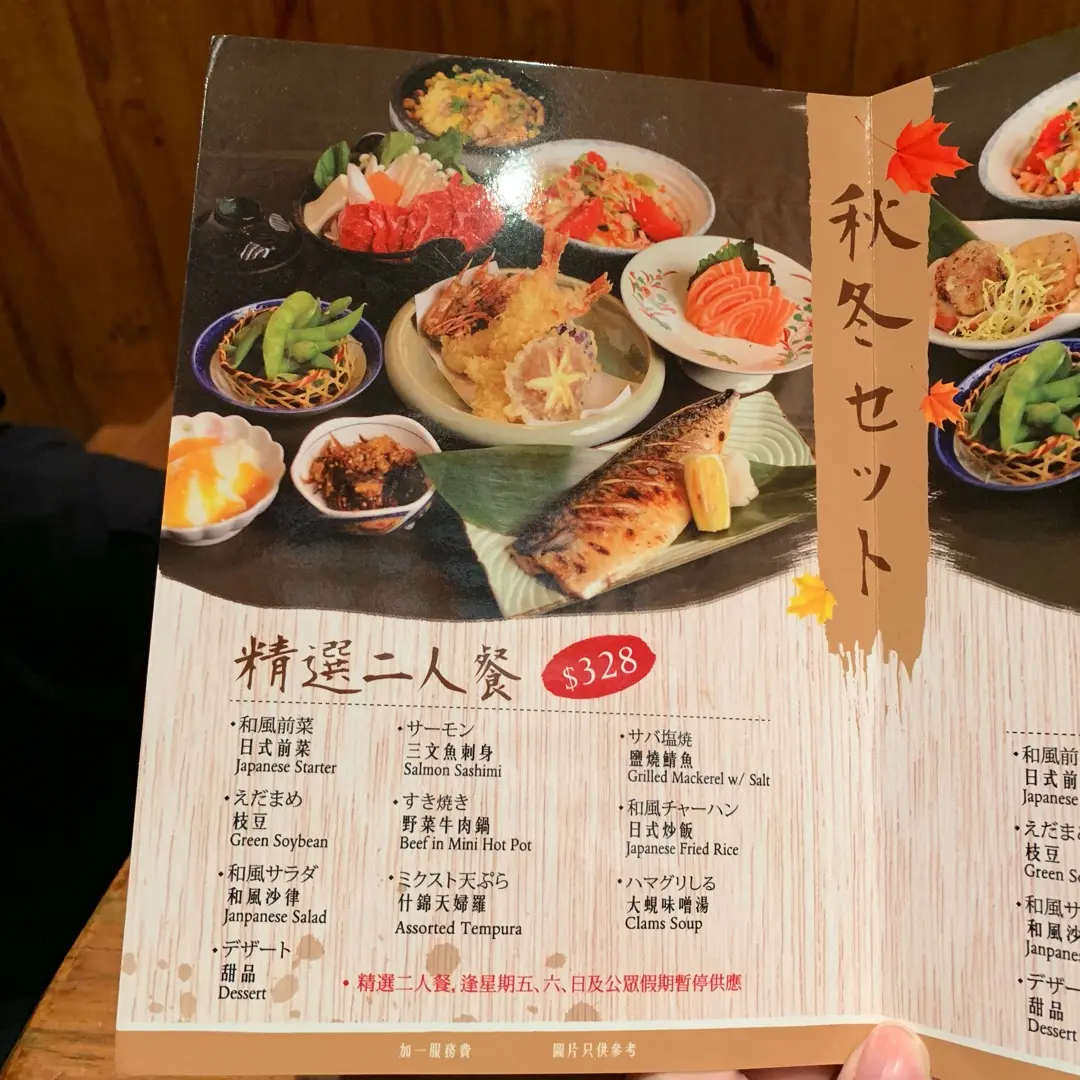 秋冬セット
精選二人餐
$328
・和風前菜
日式前菜
Japanese Starter
・えだまめ
枝豆
Green Soybean
・和風サラダ
和風沙律
Janpanese Salad
・デザート
甜品
Dessert
・サーモン
三文魚刺身
Salmon Sashimi
・すき焼き
野菜牛肉鍋
Beef in Mini Hot Pot
・ミクスト天ぷら
什錦天婦羅
Assorted Tempura
・サバ塩焼
鹽燒鯖魚
Grilled Mackerel w/ Salt
・和風チャーハン
日式炒飯
Japanese Fried Rice
・ハマグリしる
大蜆味噌湯
Clams Soup
・精選二人餐, 逢星期五、六、日及公眾假期暫停供應
加一服務費
圖片只供參考
・和風前
日式前
Japanese
・えだま
枝豆
Green S
・和風サ
和風沙
Janpan
・デザー
甜品
Dessert